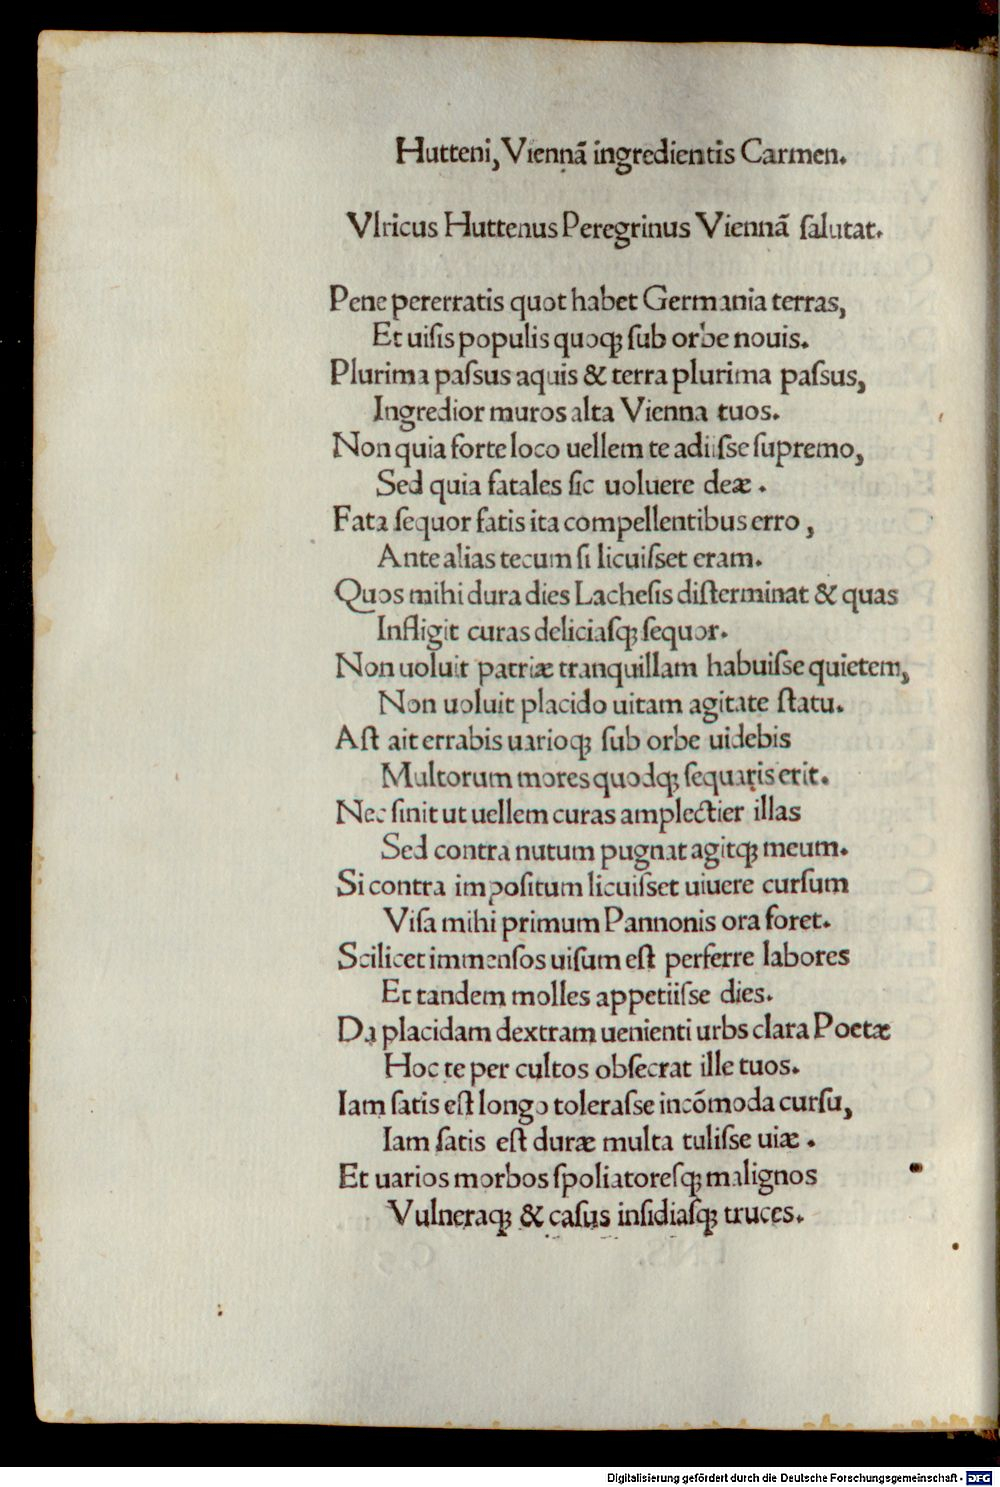 Hutteni, Viennā ingredientis Carmen.
Vlricus Huttenus Peregrinus Viennā ſalutat.
Pene pererratis quot habet Germania terras,
Et uiſis populis quoqꝫ ſub orbe nouis.
Plurima paſsus aquis & terra plurima paſsus,
Ingredior muros alta Vienna tuos.
Non quia forte loco uellem te adiiſse ſupremo,
Sed quia fatales ſic uoluere deæ.
Fata ſequor fatis ita compellentibus erro,
Ante alias tecum ſi licuiſset eram.
Quos mihi dura dies Lacheſis diſterminat & quas
Infligit curas deliciaſqꝫ ſequor.
Non uoluit patriæ tranquillam habuiſse quietem,
Non uoluit placido uitam agitate ſtatu.
Aſt ait errabis uarioqꝫ ſub orbe uidebis
Multorum mores quodqꝫ ſequaris erit.
Nec ſinit ut uellem curas amplectier illas
Sed contra nutum pugnat agitqꝫ meum.
Si contra impoſitum licuiſset uiuere curſum
Viſa mihi primum Pannonis ora foret.
Scilicet immenſos uiſum eſt perferre labores
Et tandem molles appetiiſse dies.
Da placidam dextram uenienti urbs clara Poetæ
Hoc te per cultos obſecrat ille tuos.
Iam ſatis eſt longo toleraſse incōmoda curſu,
Iam ſatis eſt duræ multa tuliſse uiæ.
Et uarios morbos ſpoliatoreſqꝫ malignos
Vulneraqꝫ & caſus inſidiaſqꝫ truces.
Digitalisierung gefördert durch die Deutsche Forschungsgemeinschaft - DFG